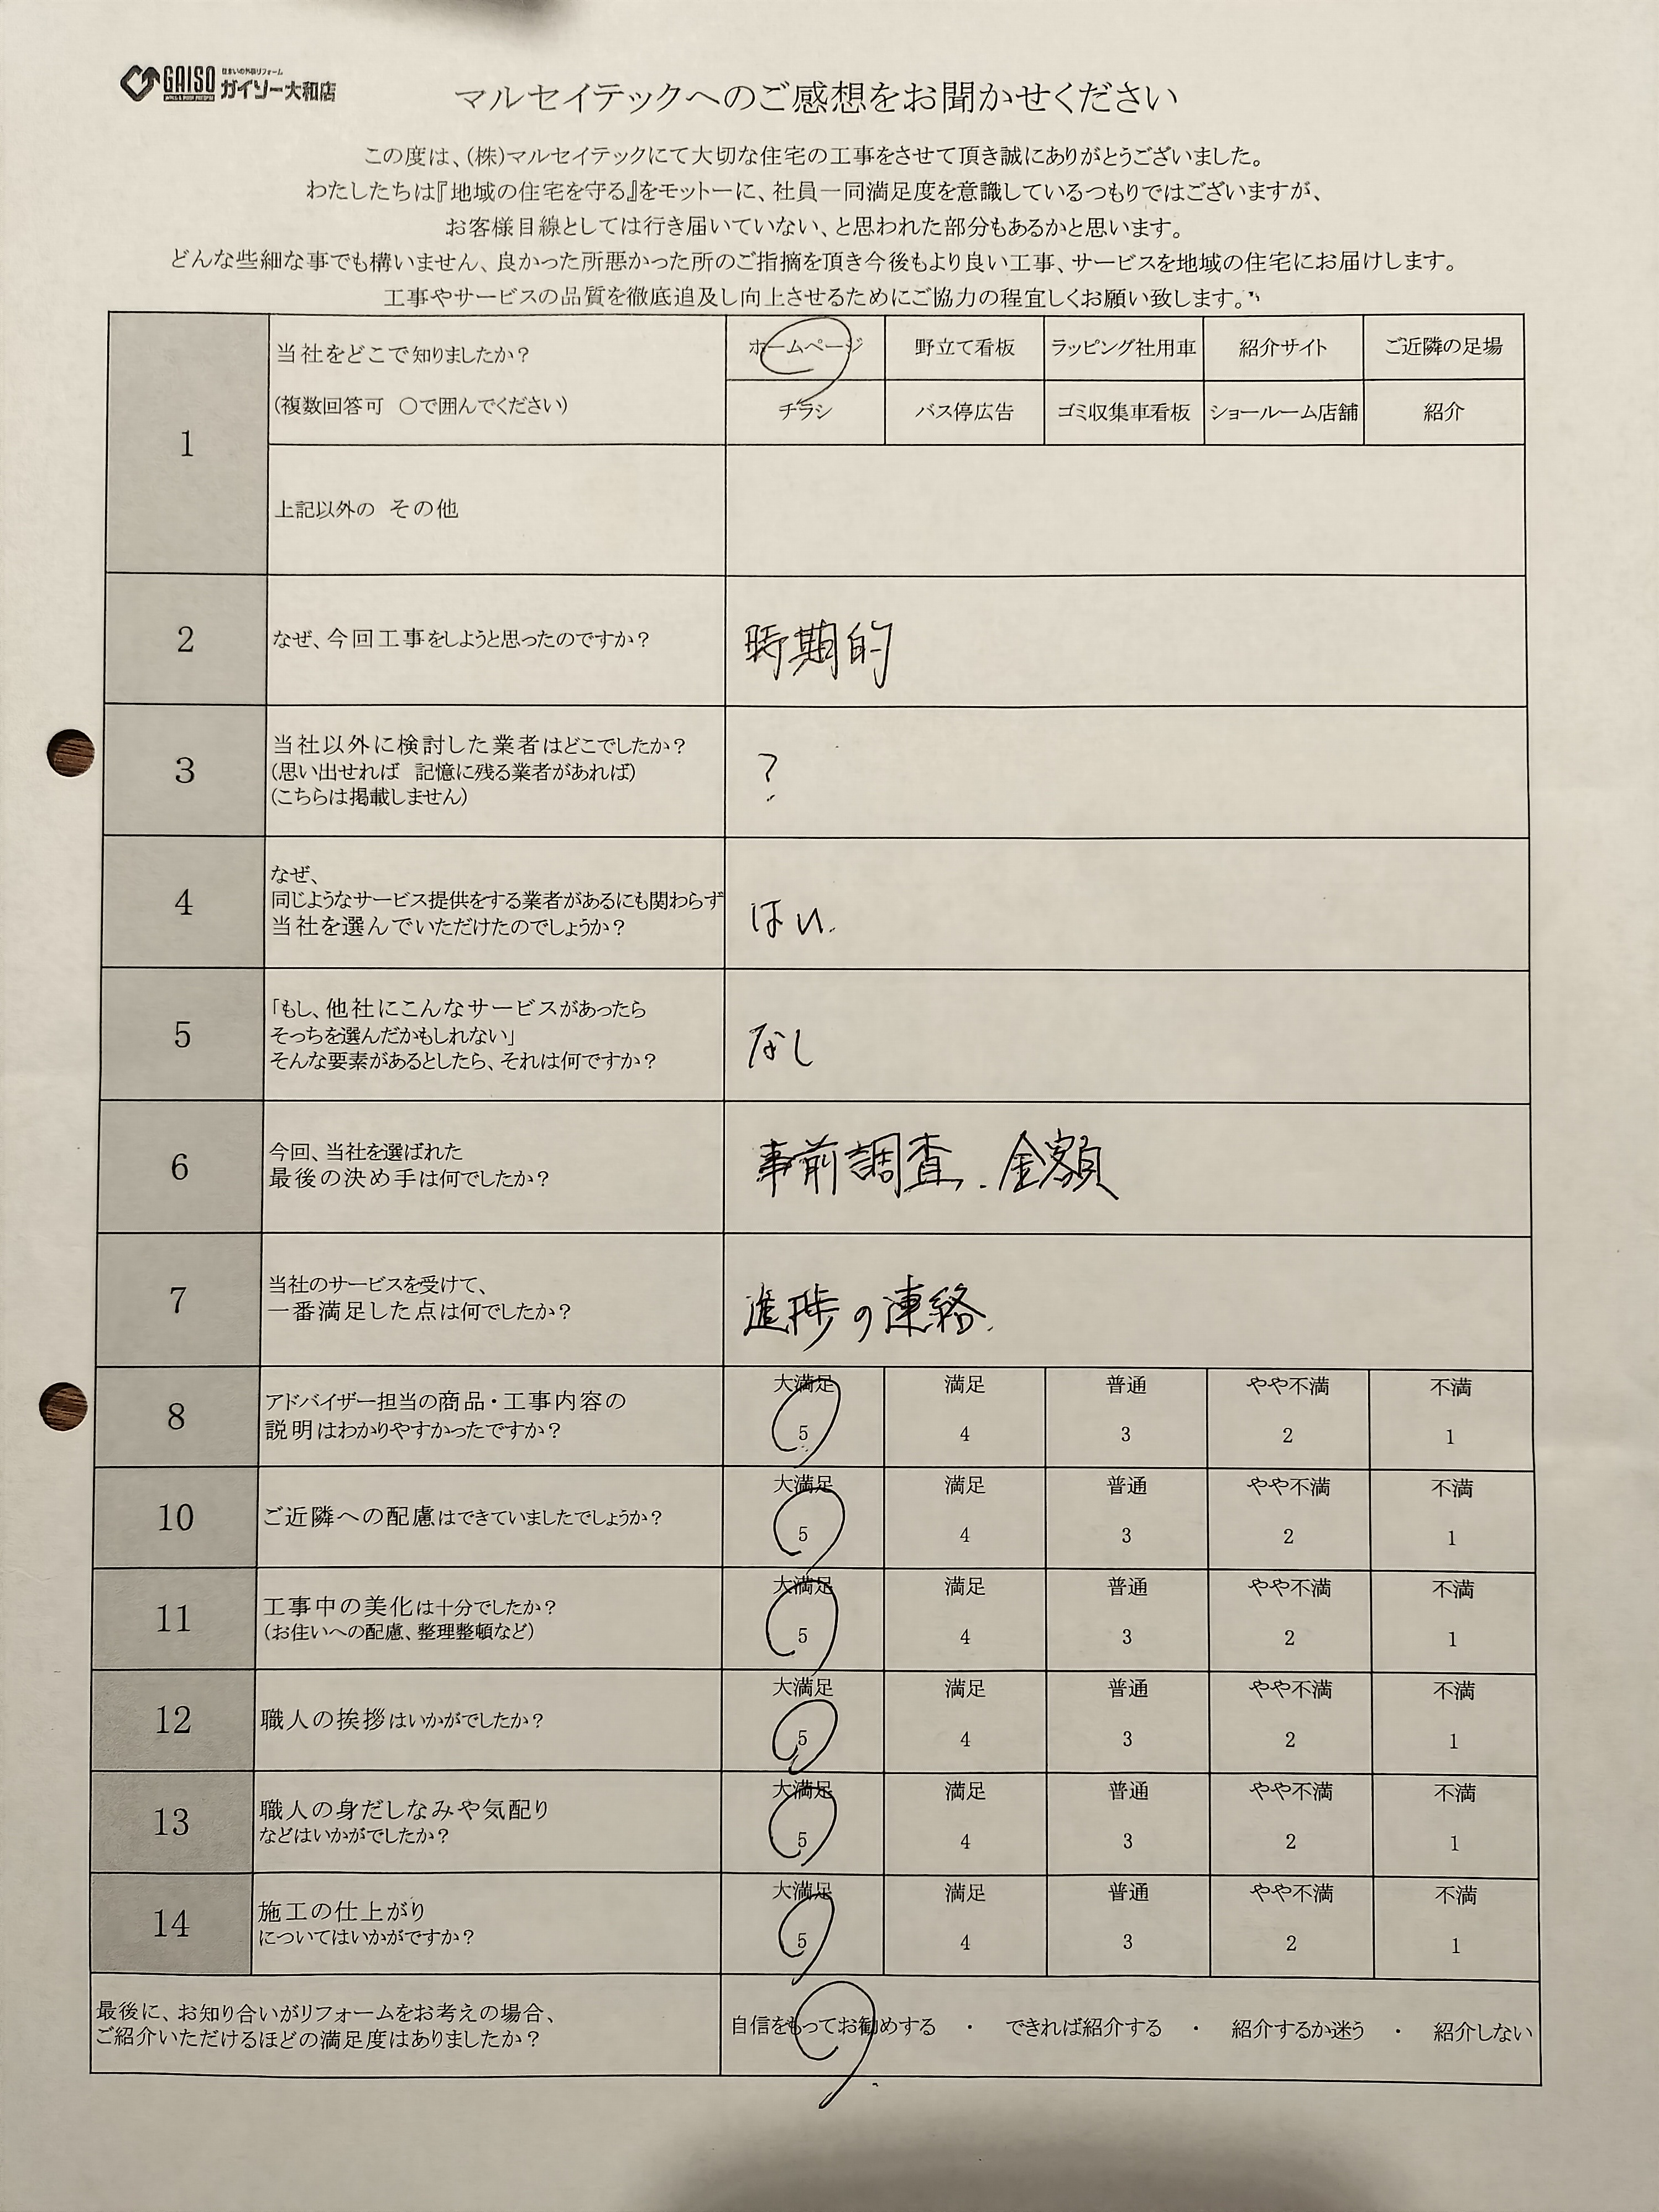 GAISO 住まいの外装リフォーム ガイソー大和店
マルセイテックへのご感想をお聞かせください
この度は、(株)マルセイテックにて大切な住宅の工事をさせて頂き誠にありがとうございました。
わたしたちは『地域の住宅を守る』をモットーに、社員一同満足度を意識しているつもりではございますが、
お客様目線としては行き届いていない、と思われた部分もあるかと思います。
どんな些細な事でも構いません、良かった所悪かった所のご指摘を頂き今後もより良い工事、サービスを地域の住宅にお届けします。
工事やサービスの品質を徹底追及し向上させるためにご協力の程宜しくお願い致します。
1
当社をどこで知りましたか?
(複数回答可 ○で囲んでください)
ホームページ 野立て看板 ラッピング社用車 紹介サイト ご近隣の足場
チラシ バス停広告 ゴミ収集車看板 ショールーム店舗 紹介
上記以外の その他
2
なぜ、今回工事をしようと思ったのですか?
時期的
3
当社以外に検討した業者はどこでしたか?
(思い出せれば 記憶に残る業者があれば)
(こちらは掲載しません)
?
4
なぜ、
同じようなサービス提供をする業者があるにも関わらず
当社を選んでいただけたのでしょうか?
はい.
5
「もし、他社にこんなサービスがあったら
そっちを選んだかもしれない」
そんな要素があるとしたら、それは何ですか?
なし
6
今回、当社を選ばれた
最後の決め手は何でしたか?
事前調査、金額
7
当社のサービスを受けて、
一番満足した点は何でしたか?
進捗の連絡.
8
アドバイザー担当の商品・工事内容の
説明はわかりやすかったですか?
大満足 満足 普通 やや不満 不満
5 4 3 2 1
10
ご近隣への配慮はできていましたでしょうか?
大満足 満足 普通 やや不満 不満
5 4 3 2 1
11
工事中の美化は十分でしたか?
(お住いへの配慮、整理整頓など)
大満足 満足 普通 やや不満 不満
5 4 3 2 1
12
職人の挨拶はいかがでしたか?
大満足 満足 普通 やや不満 不満
5 4 3 2 1
13
職人の身だしなみや気配り
などはいかがでしたか?
大満足 満足 普通 やや不満 不満
5 4 3 2 1
14
施工の仕上がり
についてはいかがですか?
大満足 満足 普通 やや不満 不満
5 4 3 2 1
最後に、お知り合いがリフォームをお考えの場合、
ご紹介いただけるほどの満足度はありましたか?
自信をもってお勧めする ・ できれば紹介する ・ 紹介するか迷う ・ 紹介しない